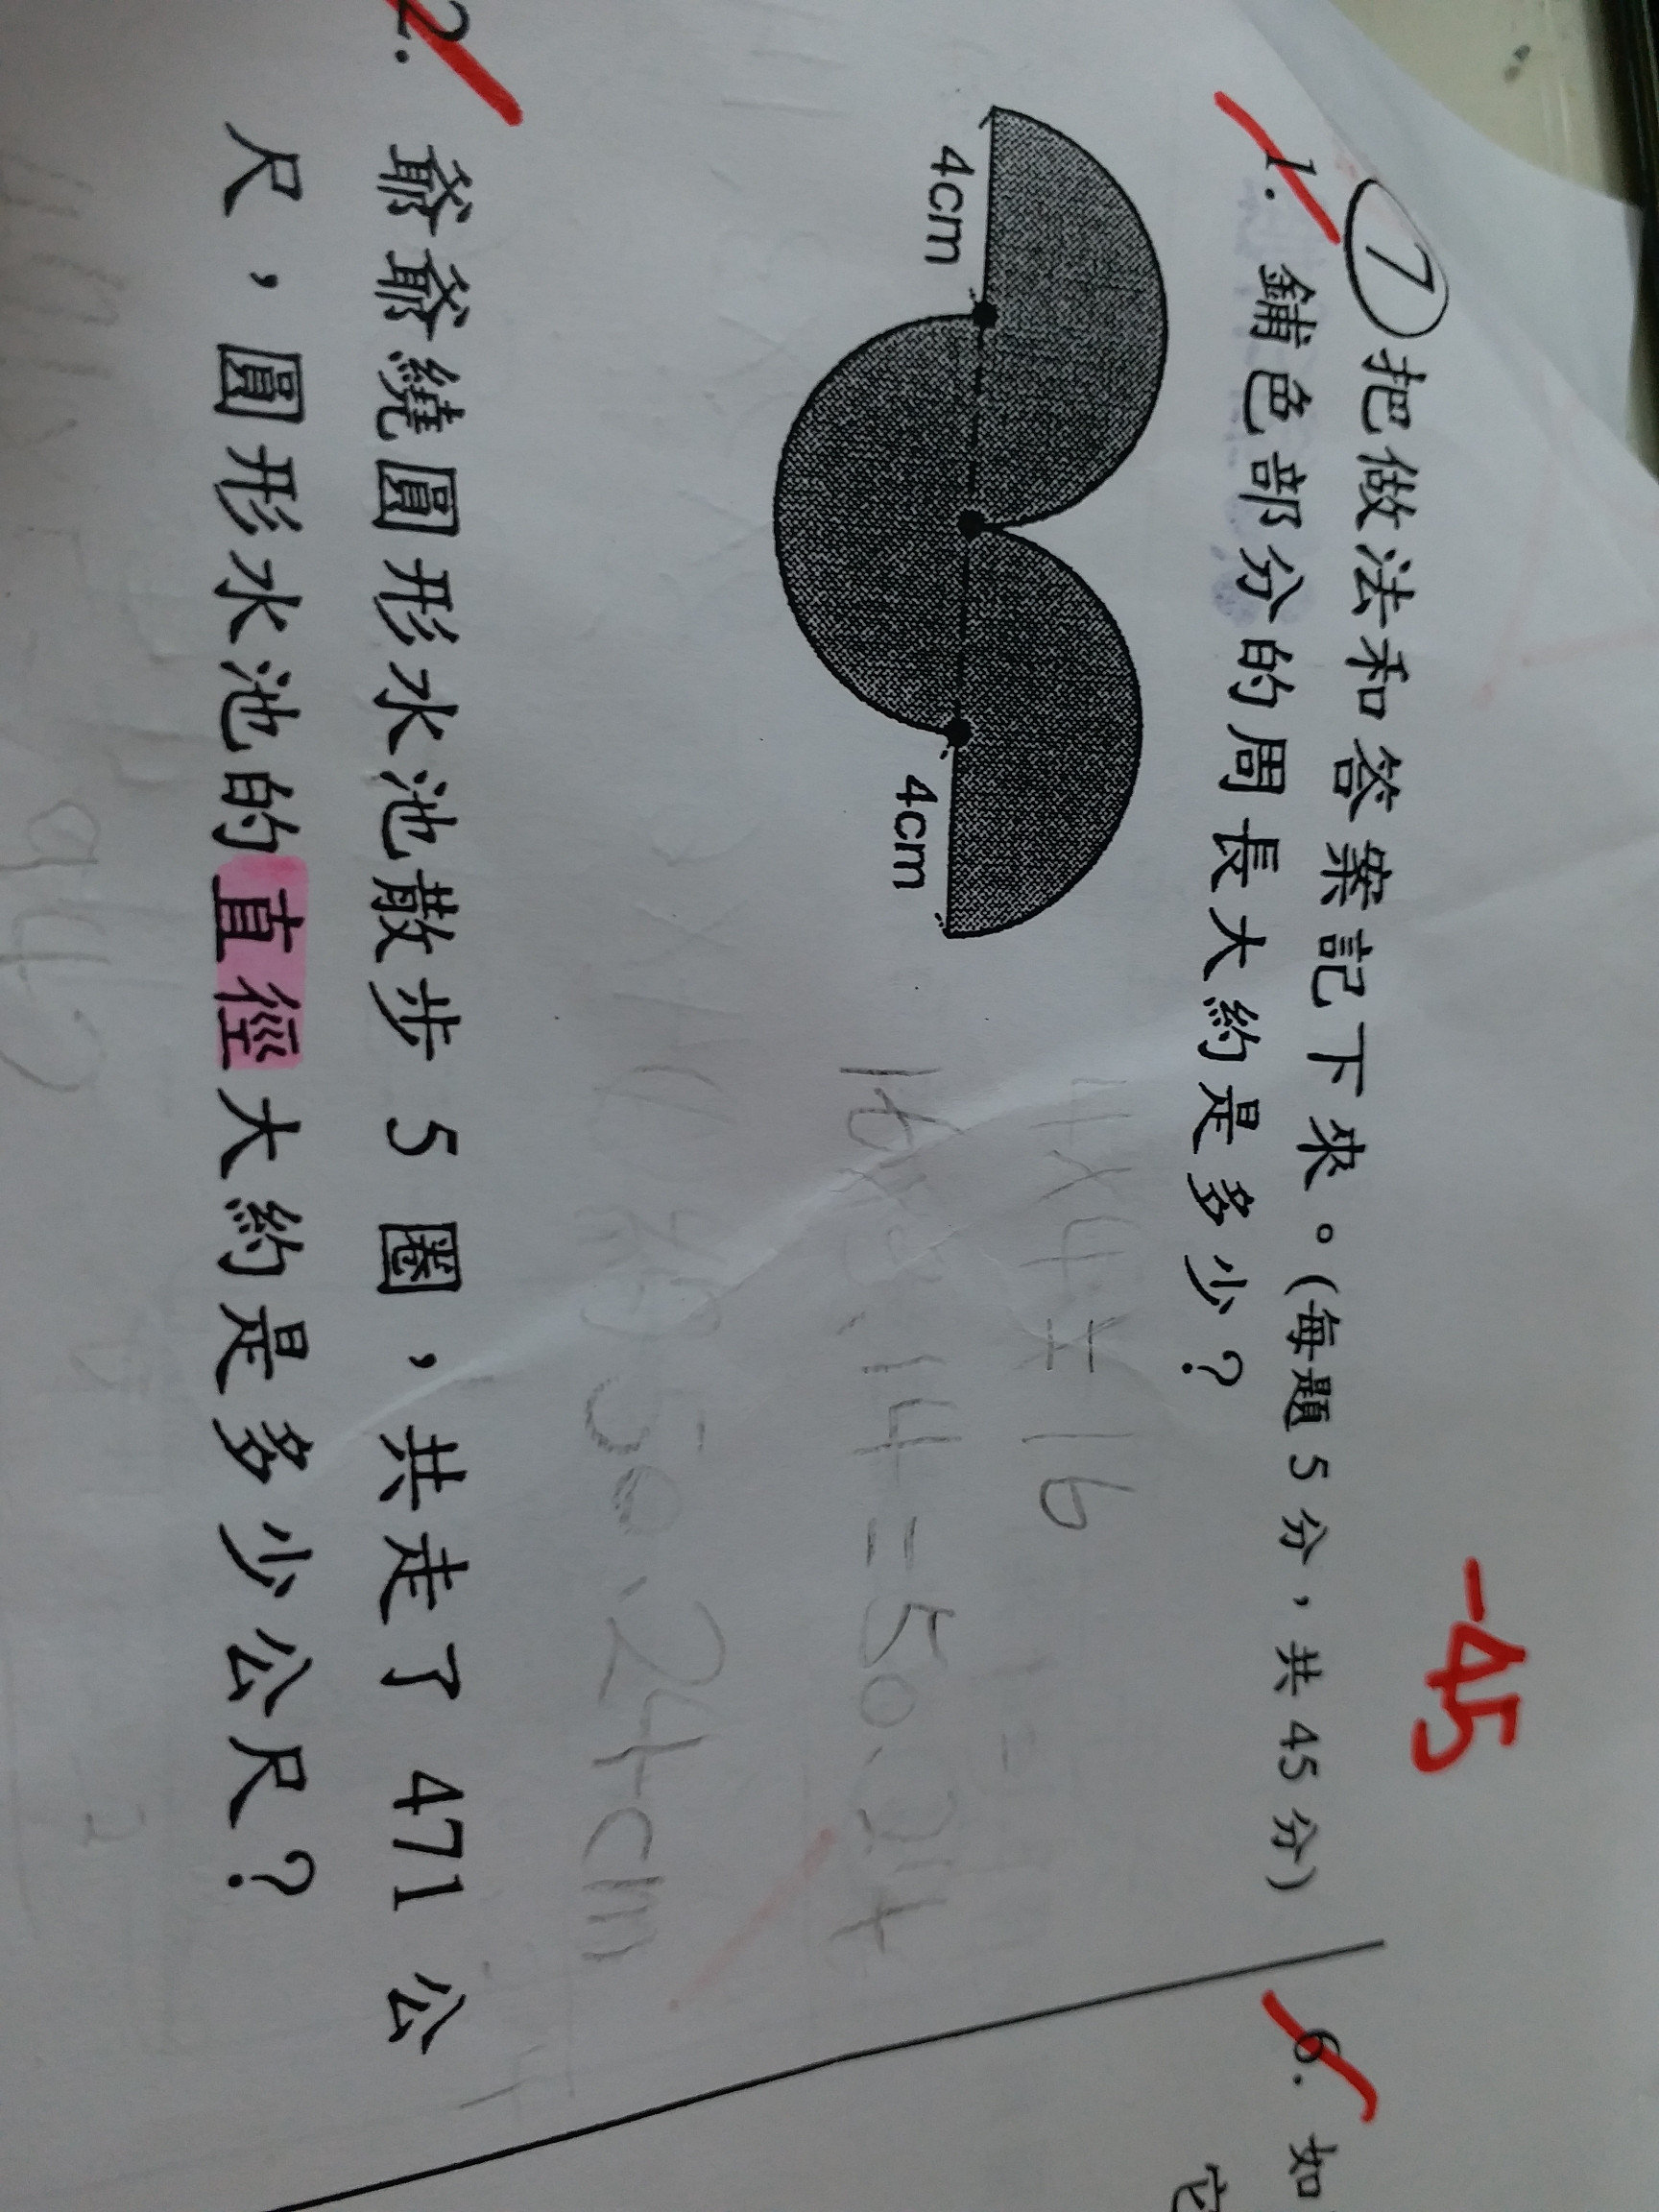 -45
⑦把做法和答案記下來。(每題5分，共45分)
1. 鋪色部分的周長大約是多少？
4cm
4cm
4×4=16
16×3.14=50.24
50.24cm
2. 爺爺繞圓形水池散步5圈，共走了471公
尺，圓形水池的直徑大約是多少公尺？
6. 如
它